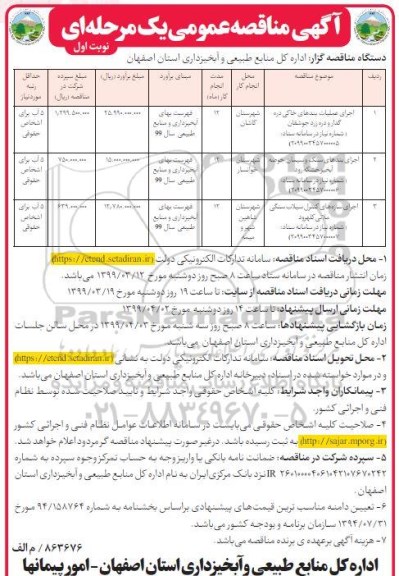 آگهی مناقصه عمومی یک مرحله‌ای
نوبت اول
دستگاه مناقصه گزار: اداره کل منابع طبیعی و آبخیزداری استان اصفهان
ردیف
موضوع مناقصه
محل انجام کار
مدت انجام کار (ماه)
مبنای برآورد
مبلغ برآورد (ریال)
مبلغ سپرده شرکت در مناقصه (ریال)
حداقل رتبه موردنیاز
۱
اجرای عملیات بندهای خاکی دره
گدار و دره زرد جوشقان
(شماره نیاز در سامانه ستاد:
شهرستان کاشان
۱۲
فهرست بهای آبخیزداری و منابع طبیعی سال 99
۲۵.۹۹۰.۰۰۰.۰۰۰
۱.۲۹۹.۵۰۰.۰۰۰
۵ آب برای اشخاص حقوقی
۲
اجرای بندهای سنگ و سیمان حوضه
(شماره نیاز در سامانه ستاد:
شهرستان خوانسار
۱۲
فهرست بهای آبخیزداری و منابع طبیعی سال 99
۱۵.۰۰۰.۰۰۰.۰۰۰
۷۵۰.۰۰۰.۰۰۰
۵ آب برای اشخاص حقوقی
۳
اجرای سازه‌های کنترل سیلاب سنگی
ملاتی کلهرود
(شماره نیاز در سامانه ستاد:
شهرستان شاهین شهر و میمه
۱۲
فهرست بهای آبخیزداری و منابع طبیعی سال 99
۱۲.۷۸۰.۰۰۰.۰۰۰
۶۳۹.۰۰۰.۰۰۰
۵ آب برای اشخاص حقوقی
۱- محل دریافت اسناد مناقصه: سامانه تدارکات الکترونیکی دولت (https://etend.setadiran.ir)
زمان انتشار مناقصه در سامانه ستاد ساعت ۸ صبح روز دوشنبه مورخ ۱۳۹۹/۰۳/۱۲ می‌باشد.
مهلت زمانی دریافت اسناد مناقصه از سایت: تا ساعت ۱۹ روز دوشنبه مورخ ۱۳۹۹/۰۳/۱۹
مهلت زمانی ارسال پیشنهاد: تا ساعت ۱۴ روز دوشنبه مورخ ۱۳۹۹/۰۴/۰۲
زمان بازگشایی پیشنهادها: ساعت ۸ صبح روز سه شنبه مورخ ۱۳۹۹/۰۴/۰۳ در محل سالن جلسات
اداره کل منابع طبیعی و آبخیزداری استان اصفهان می‌باشد.
۲- محل تحویل اسناد مناقصه: سامانه تدارکات الکترونیکی دولت به نشانی (https://etend.setadiran.ir)
و در موارد خواسته شده در اسناد، دبیرخانه اداره کل منابع طبیعی و آبخیزداری استان اصفهان می‌باشد.
۳- پیمانکاران واجد شرایط: کلیه اشخاص حقوقی واجد شرایط و تایید صلاحیت شده توسط نظام
فنی و اجرائی کشور.
۴- صلاحیت کلیه اشخاص حقوقی می‌بایست در سامانه اطلاعات عوامل نظام فنی و اجرائی کشور
(http://sajar.mporg.ir) به ثبت رسیده باشد. درغیر صورت پیشنهاد مناقصه گر مردود اعلام خواهد شد.
۵- سپرده شرکت در مناقصه: ضمانت نامه بانکی یا واریز وجه به حساب تمرکز وجوه سپرده به شماره
نزد بانک مرکزی ایران به نام اداره کل منابع طبیعی و آبخیزداری استان
اصفهان.
۶- تعیین دامنه مناسب ترین قیمت‌های پیشنهادی براساس بخشنامه به شماره ۹۴/۱۵۸۷۶۴ مورخ
۱۳۹۴/۰۷/۳۱ سازمان برنامه و بودجه کشور می‌باشد.
۷- هزینه آگهی برعهده ی برنده مناقصه می‌باشد.
۸۶۳۶۷۶ / م الف
اداره کل منابع طبیعی و آبخیزداری استان اصفهان - امور پیمانها
۰۲۱-۸۸۳۴۹۶۷۰-۵